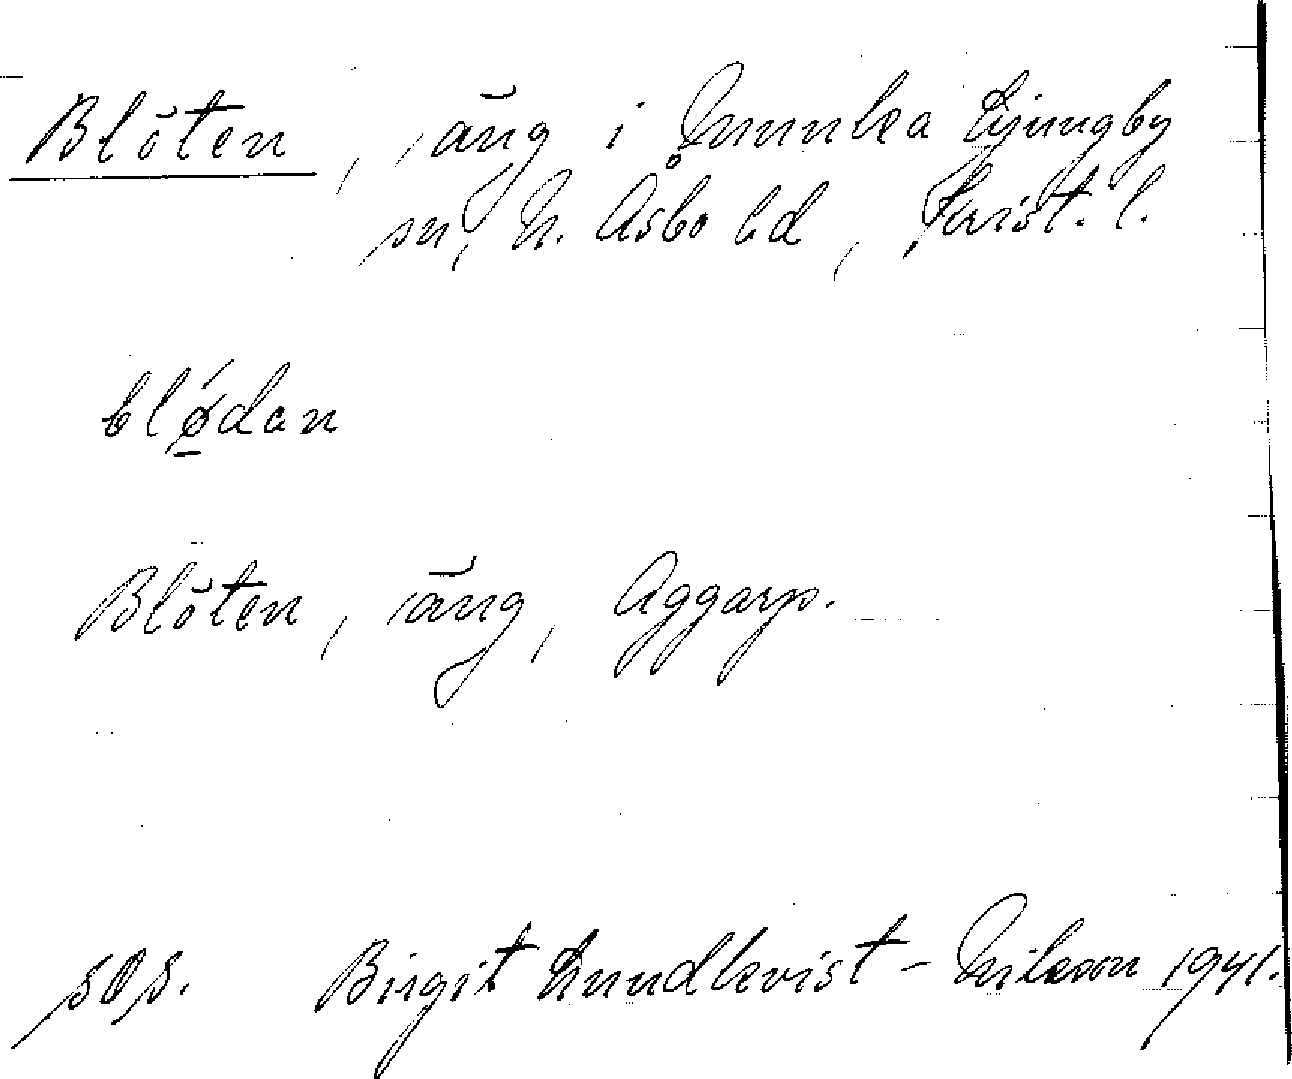 Blöten, äng i Munka Ljungby
sn, N. Åsbo hd, Krist. l.
blǿ̲dan
Blöten, äng, Aggarp.
sds. Birgit Lundkvist-Nilsson 1941.